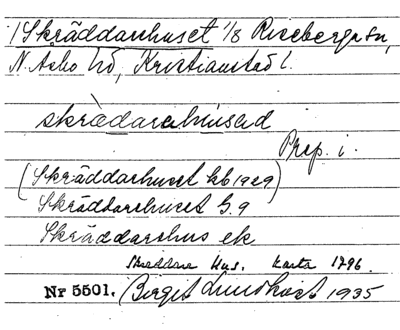 1 Skräddarehuset 1/8 Riseberga sn,
N. Åsbo hd, Kristianstad l.
skràdarehúsed
Prep. i.
(Skräddarhuset kb 1929)
Skräddarehuset G. 9
Skräddarehus ek
Skreddare Hus. karta 1796.
Nr 5501. Birgit Lundkvist 1935